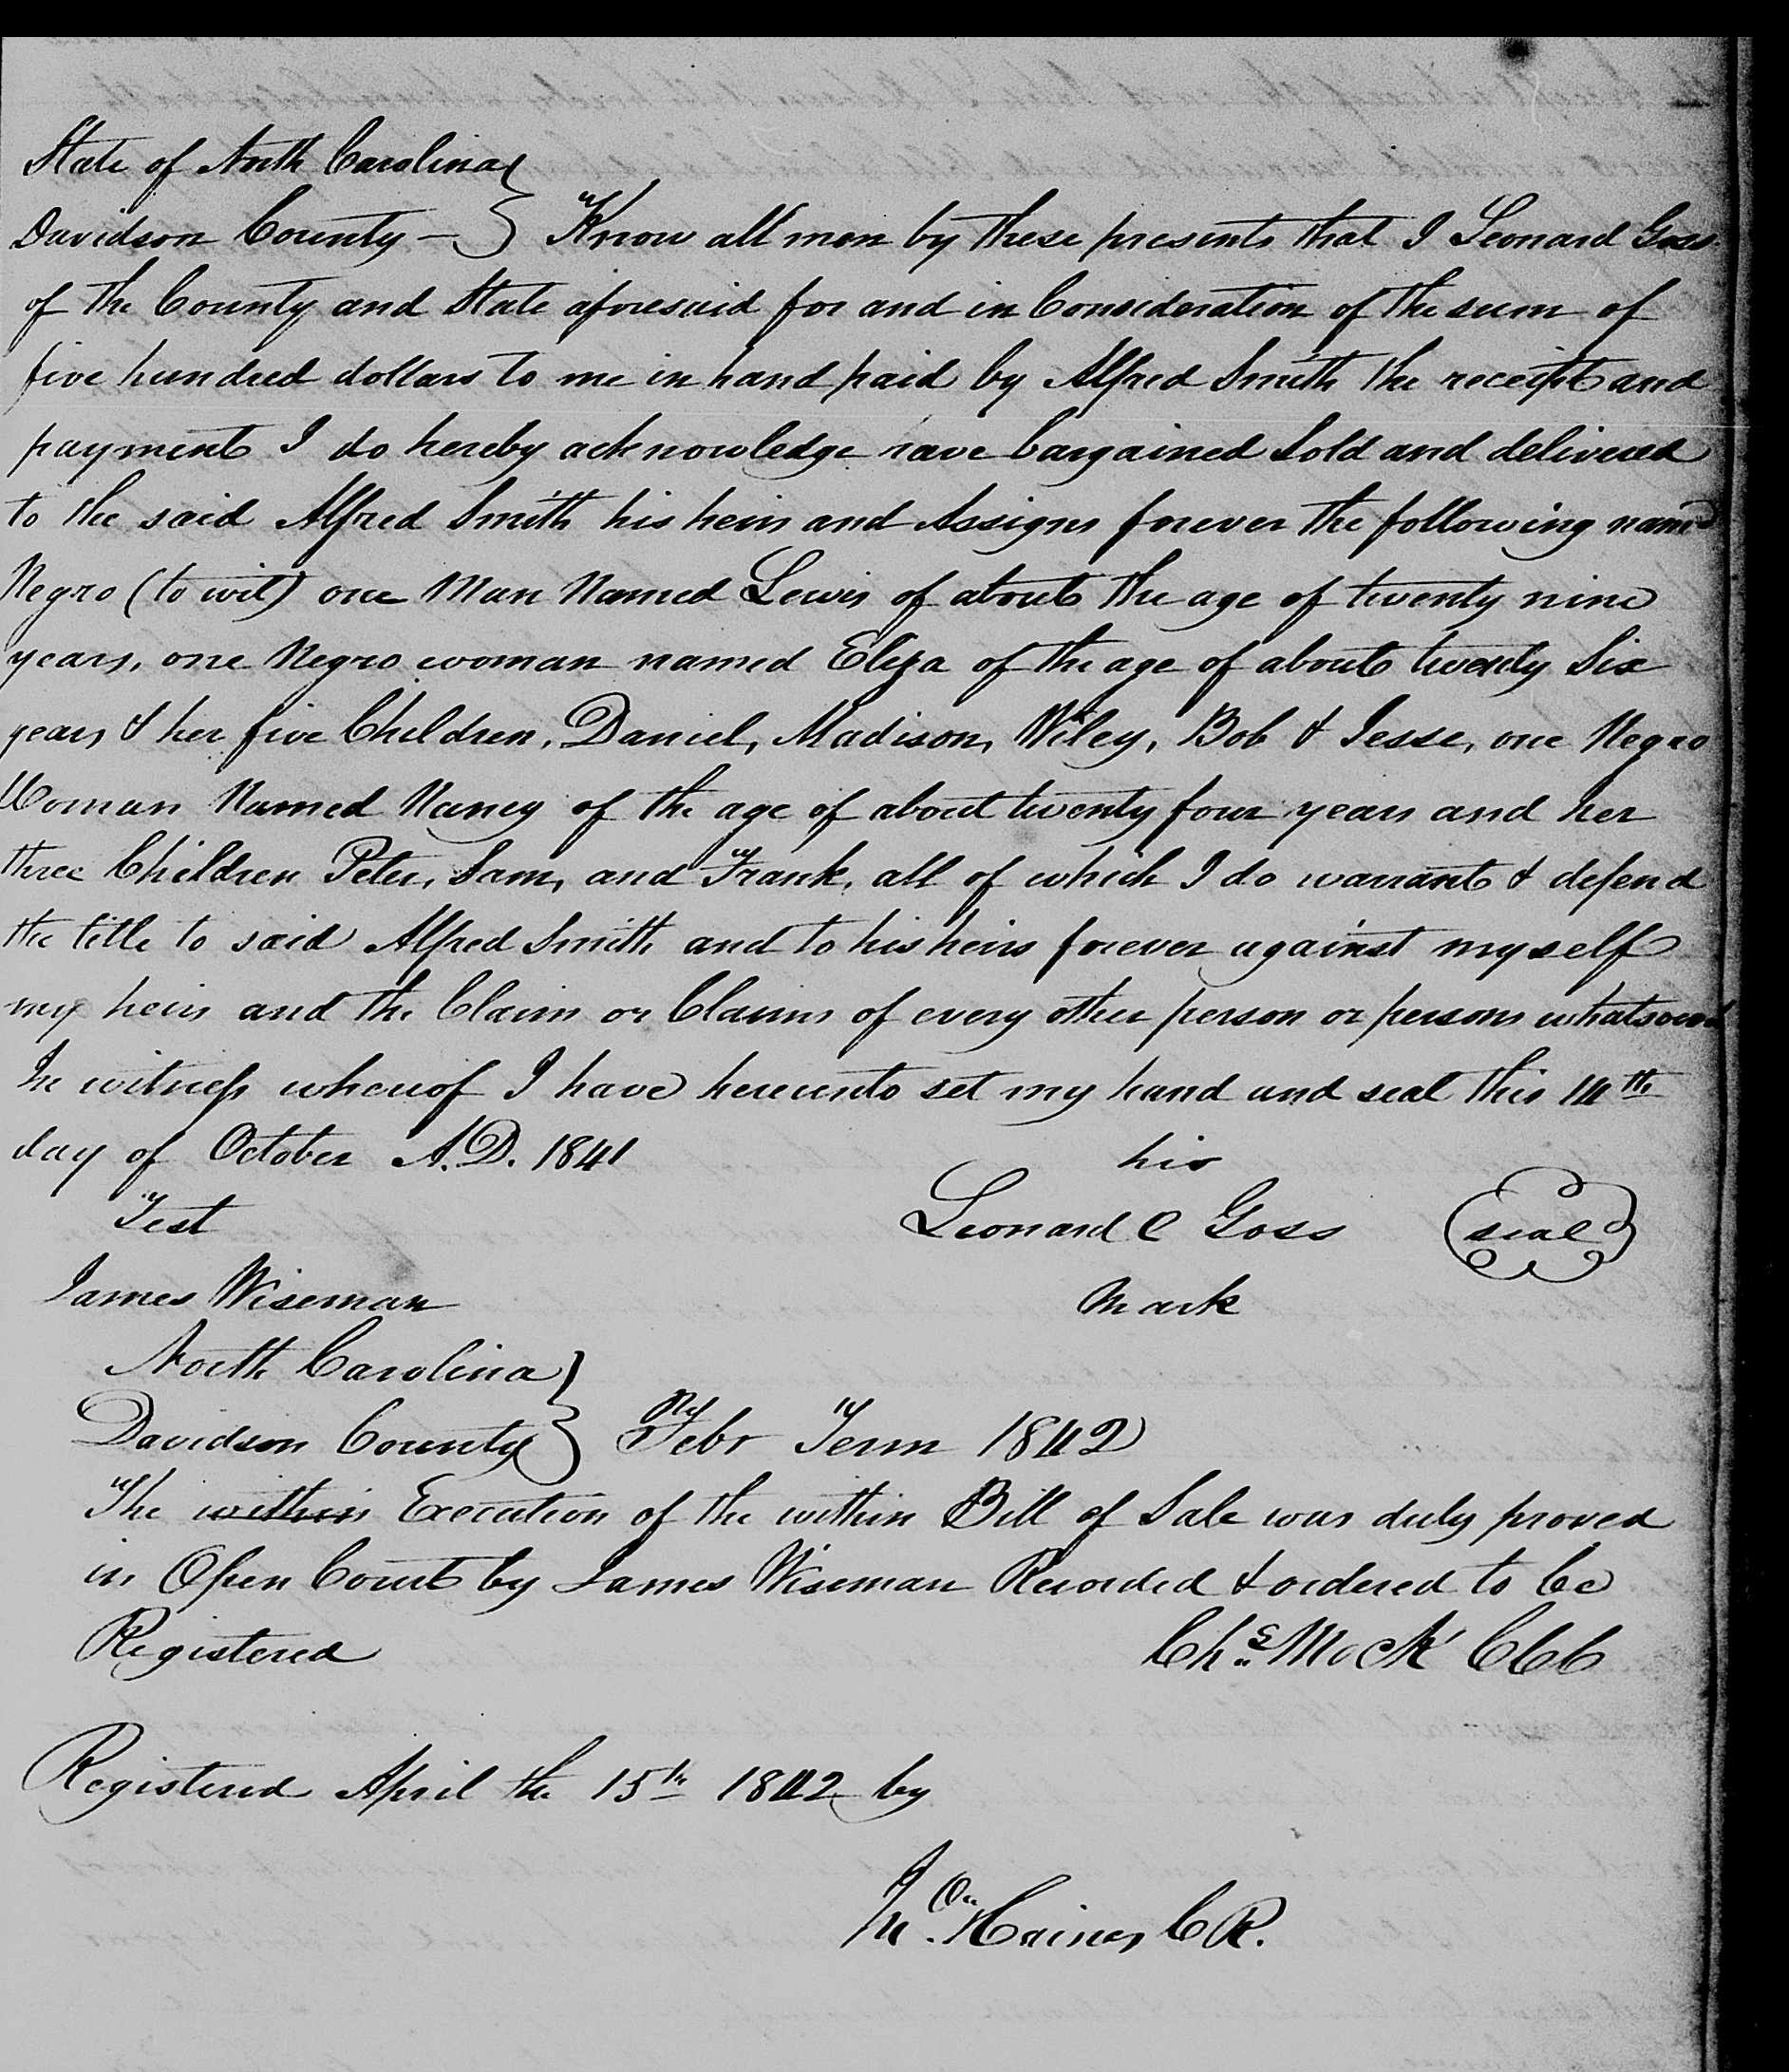 State of North Carolina }
Davidson County — } Know all men by these presents that I Leonard Goss
of the County and State aforesaid for and in Consideration of the sum of
five hundred dollars to me in hand paid by Alfred Smith the receipt and
payment I do hereby acknowledge have bargained Sold and delivered
to the said Alfred Smith his heirs and Assigns forever the following named
Negro (to wit) one Man Named Lewis of about the age of twenty nine
years, one Negro woman named Eliza of the age of about twenty Six
years & her five Children, Daniel, Madison, Wiley, Bob & Jesse, one Negro
Woman Named Nancy of the age of about twenty four years and her
three Children Peter, Sam, and Frank, all of which I do warrant & defend
the title to said Alfred Smith and to his heirs forever against myself
my heirs and the Claim or Claims of every other person or persons whatsoever
In witness whereof I have hereunto set my hand and seal this 14th
day of October A.D. 1841
his
Test
Leonard C Goss (seal)
James Wiseman
mark
North Carolina }
Davidson County } Febry Term 1842
The within Execution of the within Bill of Sale was duly proved
in Open Court by James Wiseman Recorded & ordered to be
Registered
Chs. Mock CCC
Registered April the 15th 1842 by
Haines CR.